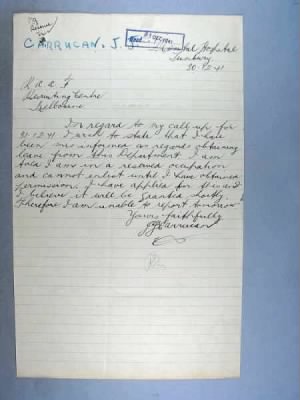 CARRUCAN, J. J.
Mental Hospital
Sunbury
30-12-41
R.a.a.F
Recruiting Centre
Melbourne
In regard to my call up for
31.12.41 I wish to state that I have
been mis informed as regards obtaining
leave from this Department. I am
told I am in a reserved occupation
and cannot enlist until I have obtained
permission. I have applied for it and
I believe it will be granted shortly.
Therefore I am unable to report tomorrow
Yours faithfully
J J Carrucan